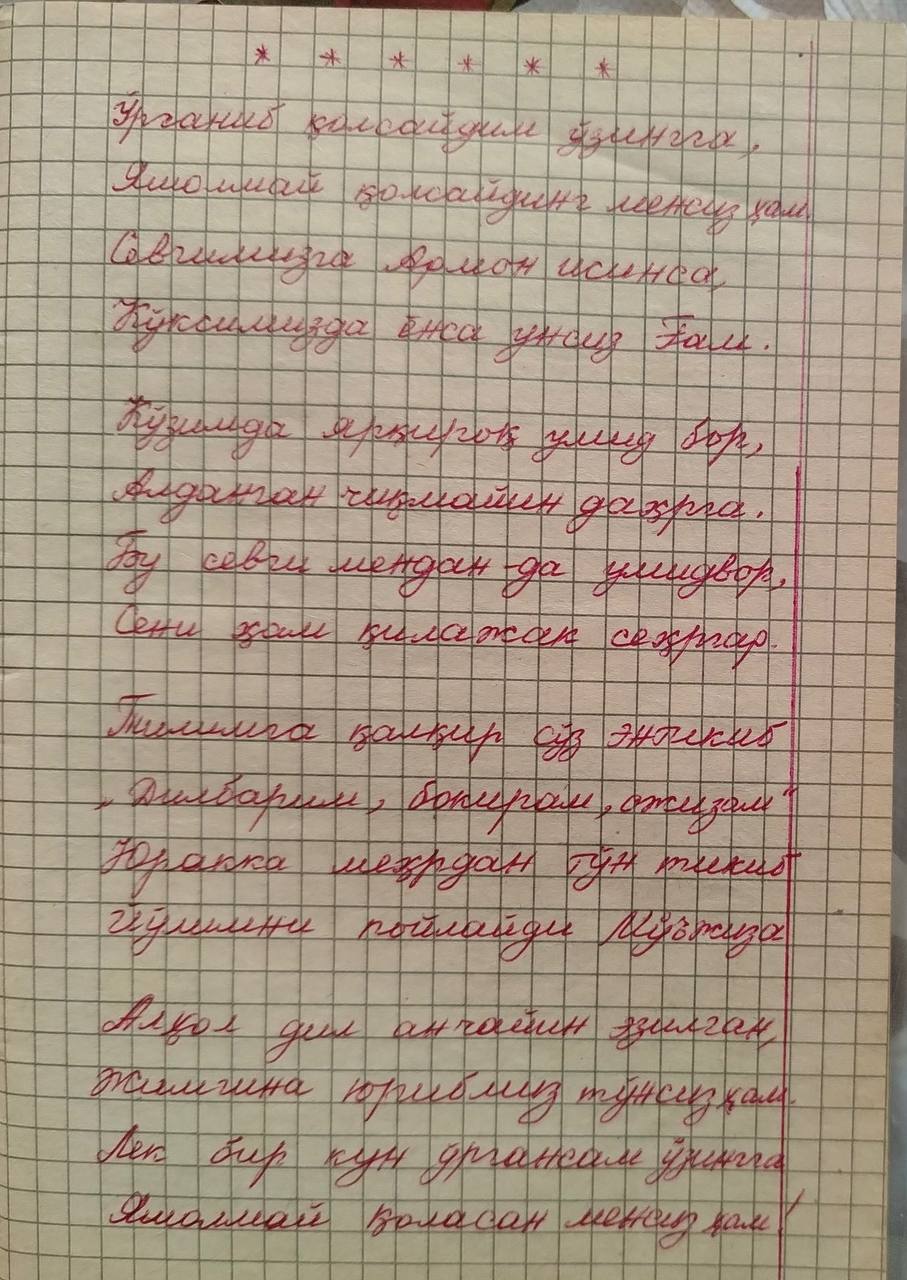 * * * * * *
Ўрганиб қолсайдим ўзингга,
Яшолмай қолсайдинг менсиз ҳам
Севгимизга Армон исинса,
Кўксимизда ёнса унсиз Ғам.
Кўзимда ярқироқ умид бор,
Алданган чиқмайин даҳрга.
Бу севги мендан-да умидвор,
Сени ҳам қилажак сеҳргар.
Тилимга қалқир сўз энтикиб
„Дилбарим, бокирам, ожизам"
Юракка меҳрдан тўн тикиб
Йўлимни пойлайди Мўъжиза
Алқол дил анчайин эзилган,
Жимгина юрибмиз тўнсиз ҳам.
Лек бир кун ўргансам ўзингга
Яшолмай қоласан менсиз ҳам!